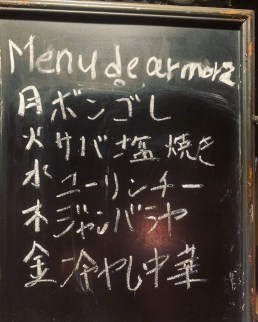 Menu de armorz
月 ボンゴレ
火 サバ塩焼き
水 ユーリンチー
木 ジャンバラヤ
金 冷やし中華